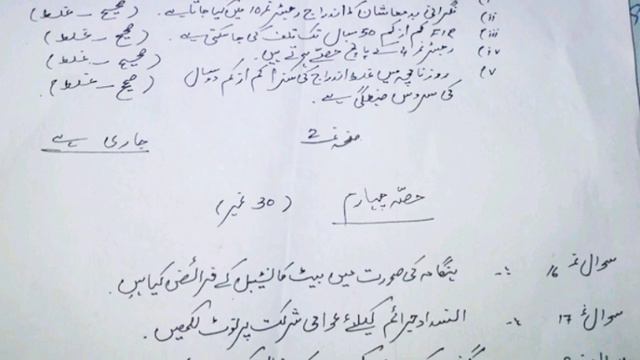 (ii نگرانی بدمعاشاں کا اندراج رجسٹر نمبر 10 میں کیا جاتا ہے۔ (صحیح - غلط)
(iii FIR کم از کم 50 سال تک تلف کی جا سکتی ہے۔ (صحیح - غلط)
(iv رجسٹر نمبر 4 کے پانچ حصے ہوتے ہیں۔ (صحیح - غلط)
(v روزنامچہ میں غلط اندراج کی سزا کم از کم دو سال (صحیح - غلط)
کی سروس ضبطگی ہے۔
صفحہ 2 جاری ہے
حصہ چہارم (30 نمبر)
سوال نمبر 16 :- ہنگامہ کی صورت میں بیٹ کانسٹیبل کے فرائض کیا ہیں۔
سوال نمبر 17 :- انسداد جرائم کیلئے عوامی شرکت پر نوٹ لکھیں۔